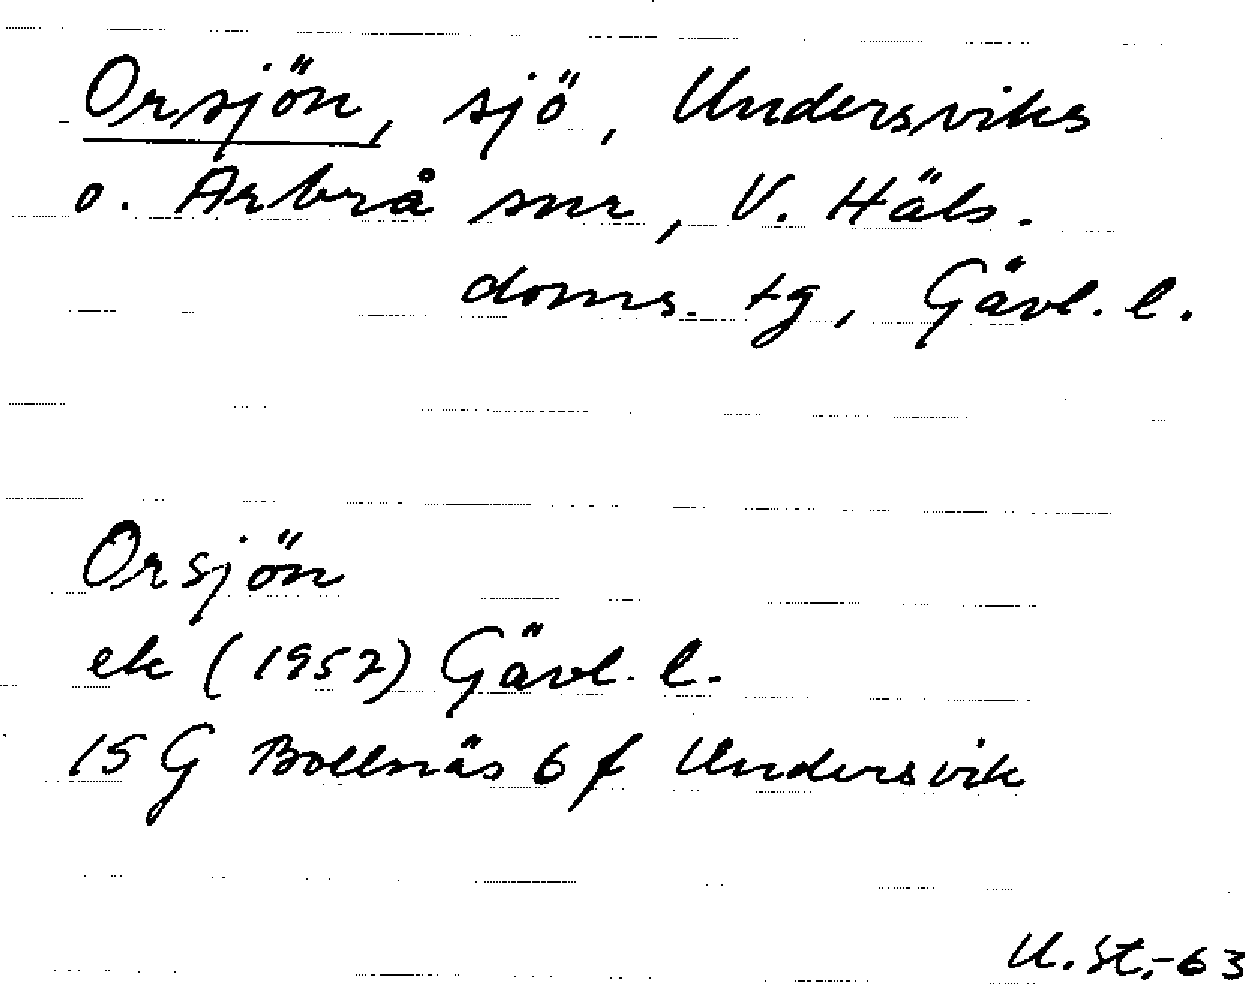 Orsjön, sjö, Undersviks
o. Arbrå snr, V. Häls.
doms. tg, Gävl. l.
Orsjön
ek (1957) Gävl. l.
15 G Bollnäs 6 f Undersvik
U. St.-63